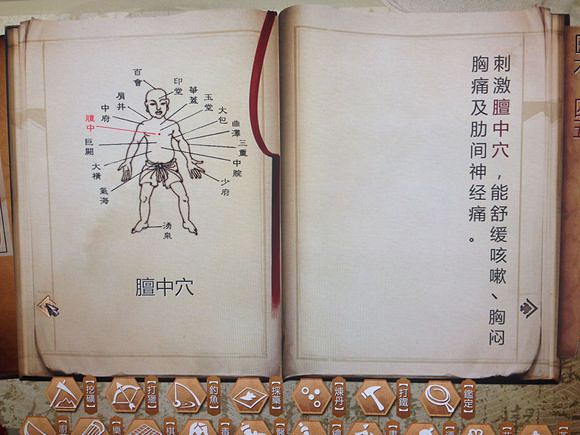 百會
印堂
華蓋
玉堂
大包
曲澤
三里
中脘
少府
肩井
中府
膻中
巨闕
大橫
氣海
湧泉
膻中穴
刺激膻中穴，能舒缓咳嗽、胸闷
胸痛及肋间神经痛。
【挖礦】
【打獵】
【釣魚】
【採藥】
【煉丹】
【打鐵】
【鑑定】